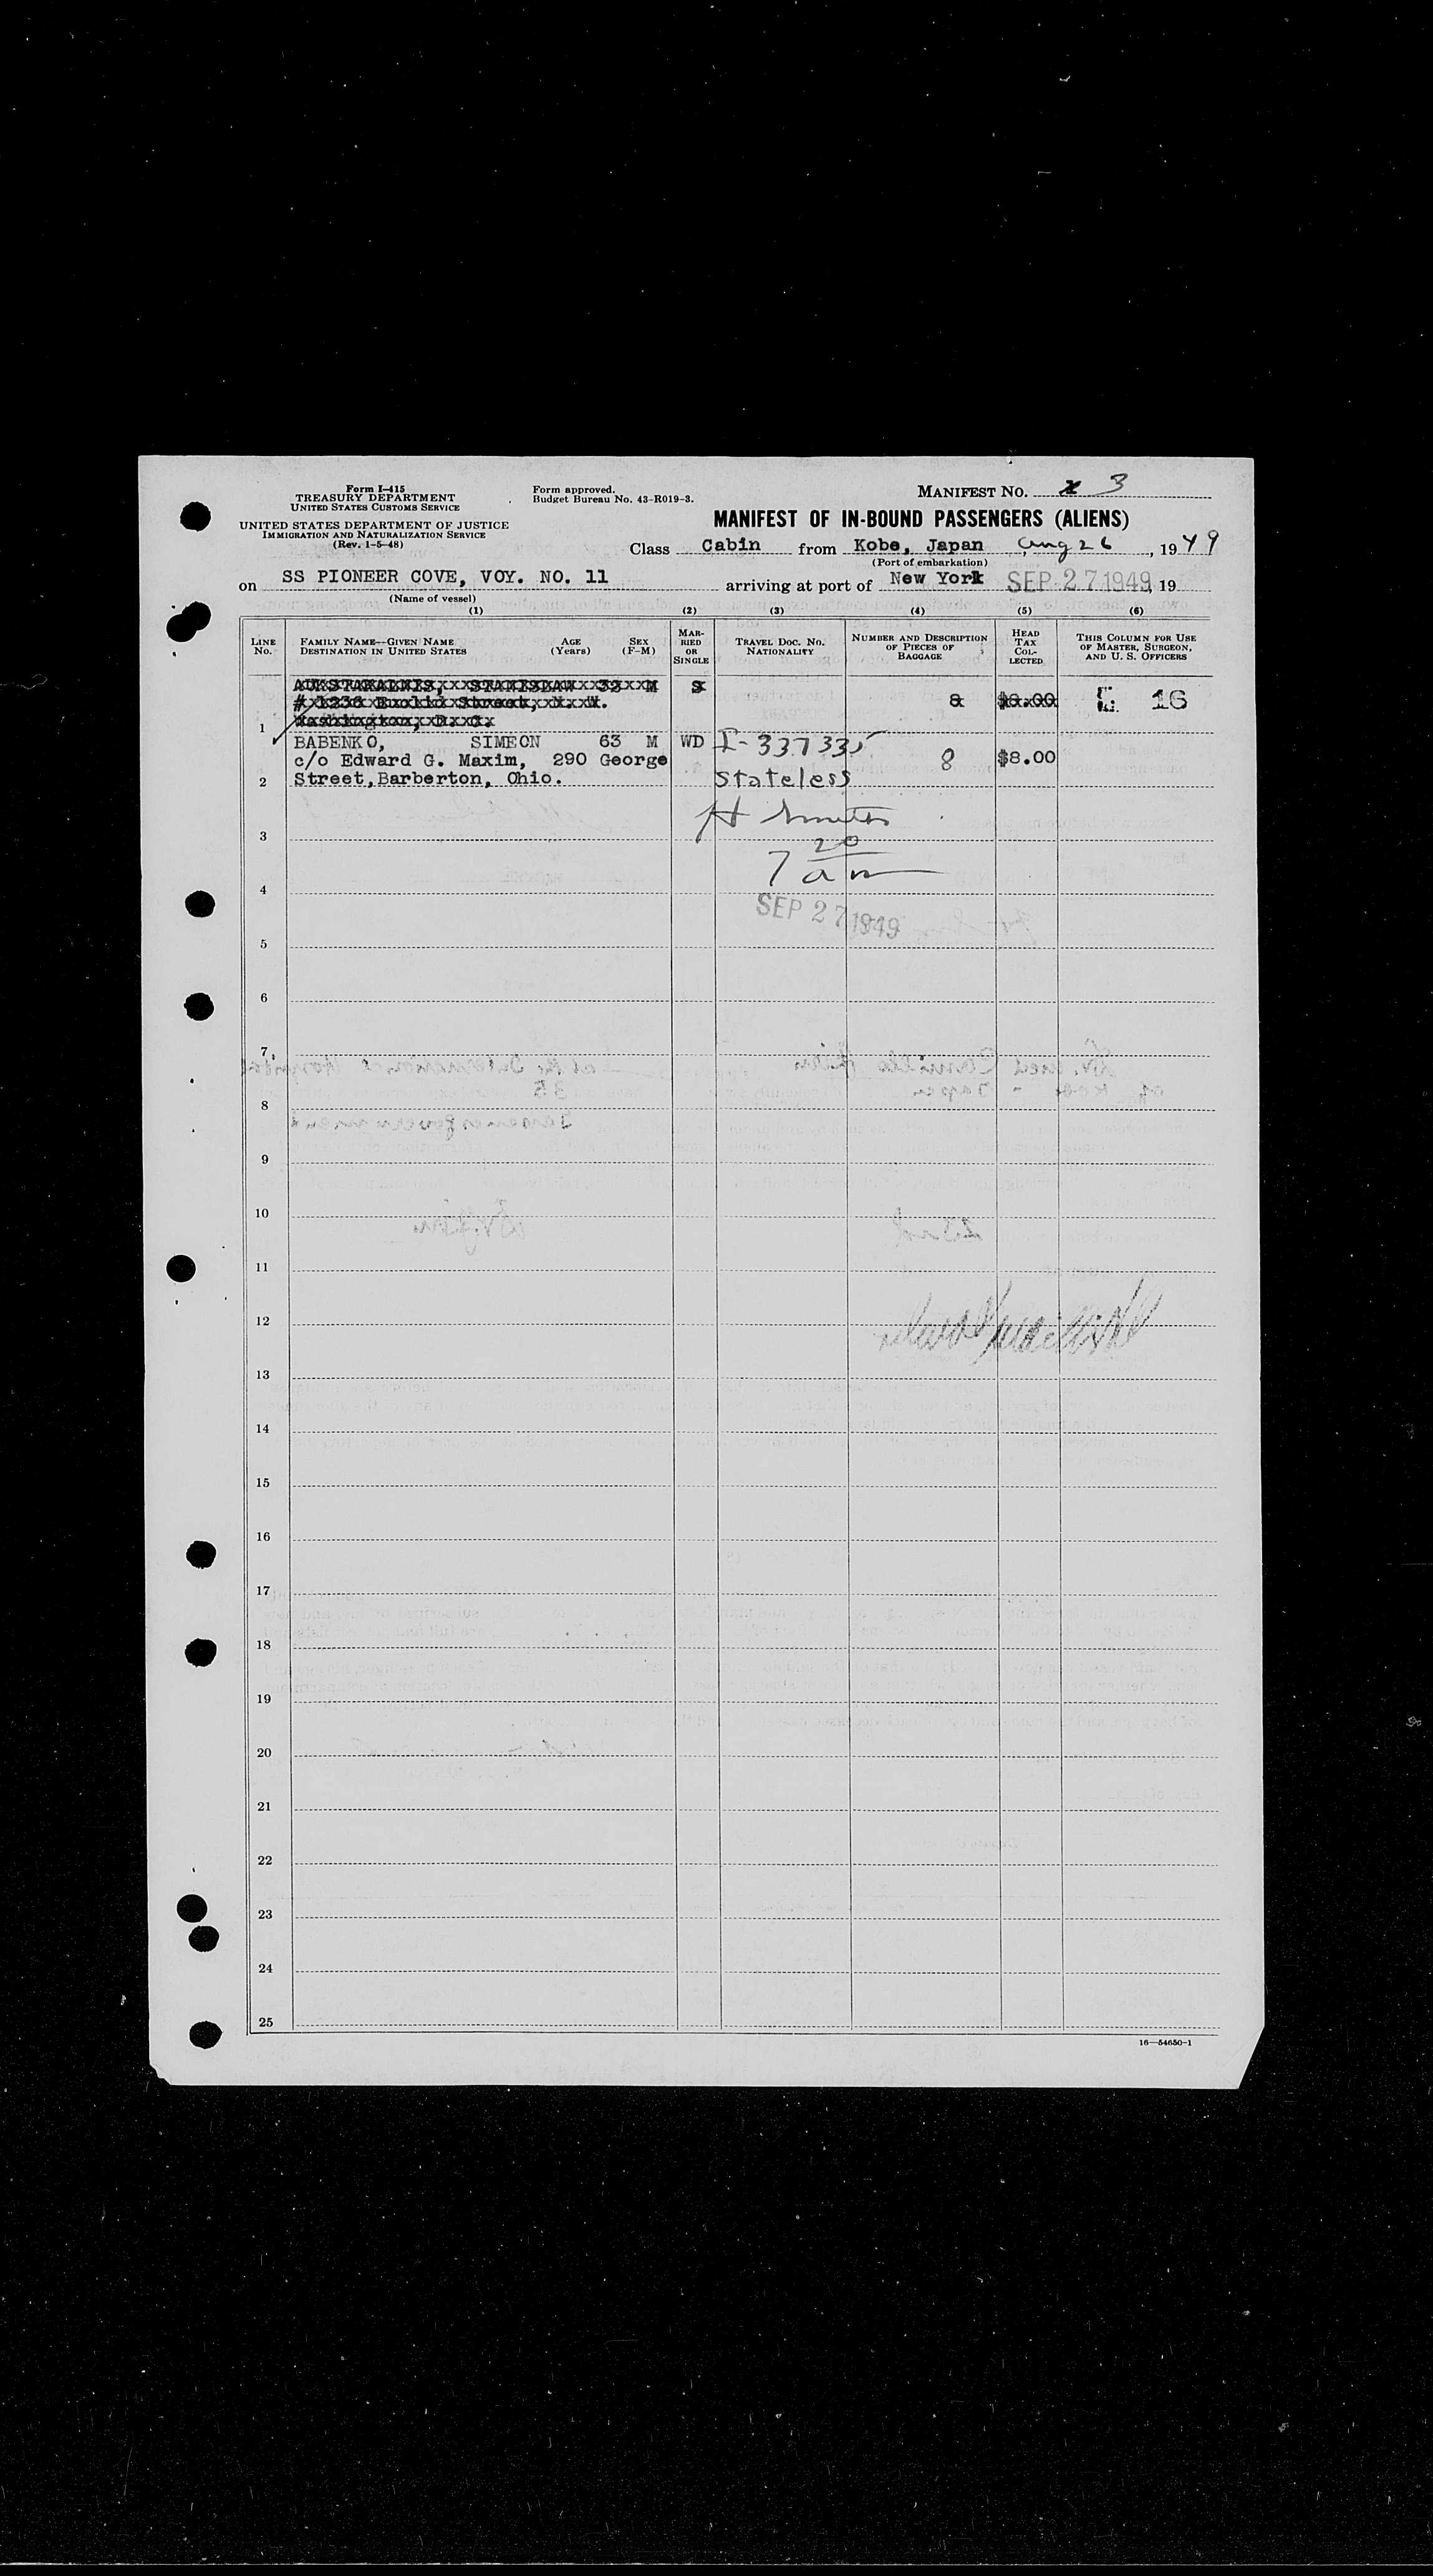 Form I-415
TREASURY DEPARTMENT
UNITED STATES CUSTOMS SERVICE
UNITED STATES DEPARTMENT OF JUSTICE
IMMIGRATION AND NATURALIZATION SERVICE
(Rev. 1-5-48)
Form approved.
Budget Bureau No. 43-R019-3.
MANIFEST NO. 3
MANIFEST OF IN-BOUND PASSENGERS (ALIENS)
Class Cabin from Kobe, Japan Aug 26, 1949
(Port of embarkation)
on SS PIONEER COVE, VOY. NO. 11 arriving at port of New York SEP 27 1949, 19
(Name of vessel)
(1) (2) (3) (4) (5) (6)
LINE NO.
FAMILY NAME—GIVEN NAME
DESTINATION IN UNITED STATES
AGE (Years)
SEX (F-M)
MARRIED OR SINGLE
TRAVEL DOC. NO.
NATIONALITY
NUMBER AND DESCRIPTION OF PIECES OF BAGGAGE
HEAD TAX COLLECTED
THIS COLUMN FOR USE OF MASTER, SURGEON, AND U. S. OFFICERS
AUKSTAKALNIS, STANISLAW M S 8 $8.00 16
1236 Euclid Street, N. W.
1 Washington, D. C.
BABENKO, SIMEON 63 M WD I-337335
c/o Edward G. Maxim, 290 George 8 $8.00
2 Street, Barberton, Ohio. Stateless
H Smith
3
7 20 am
4
SEP 27 1949
5
6
7
8
9
10
11
12
13
14
15
16
17
18
19
20
21
22
23
24
25
16—54650-1